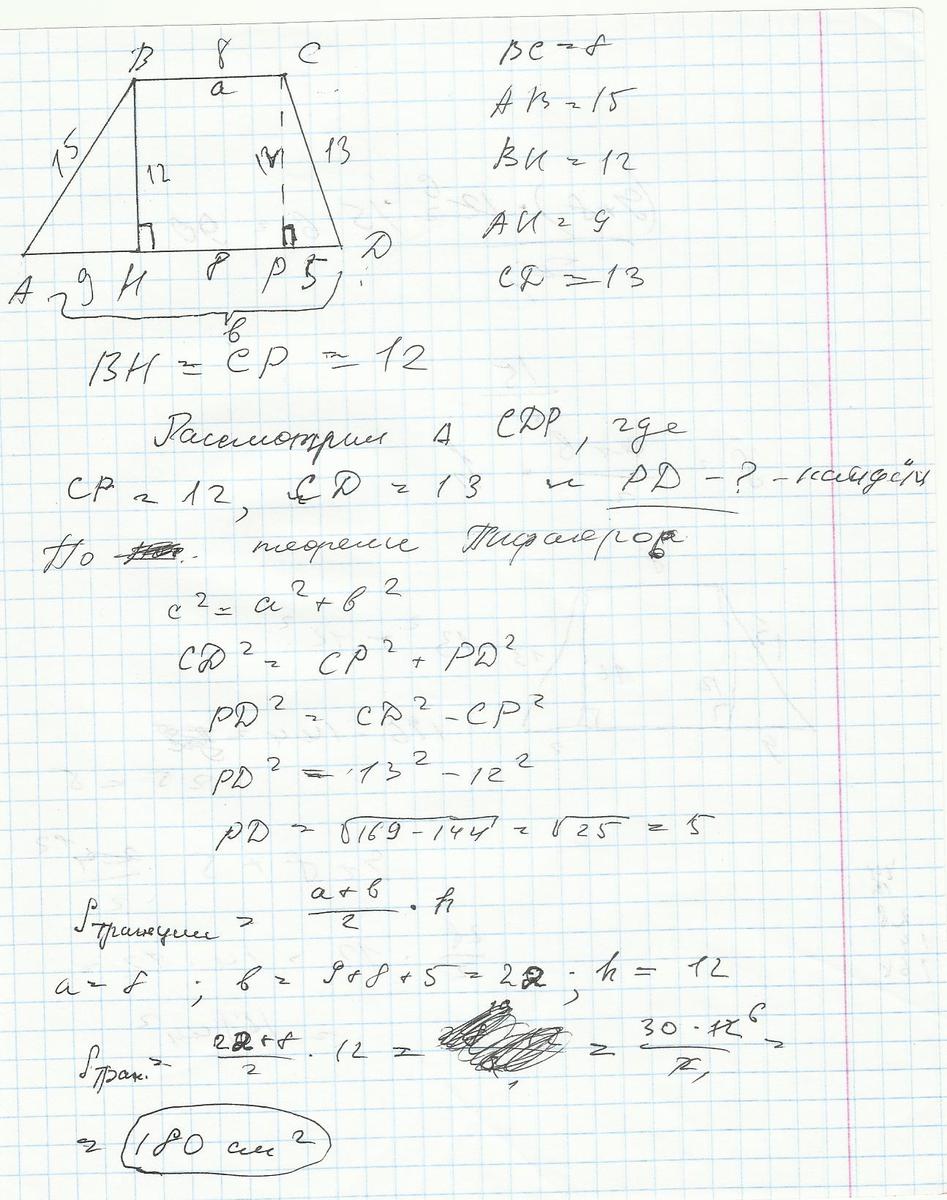 B 8 C
a
15 12 12 13
A 9 H 8 P 5 D
в
BC = 8
AB = 15
BH = 12
AH = 9
CD = 13
BH = CP = 12
Рассмотрим Δ CDP, где
CP = 12, CD = 13 и PD - ? - найдём
По теореме Пифагора
c² = a² + в²
CD² = CP² + PD²
PD² = CD² - CP²
PD² = 13² - 12²
PD = √169 - 144 = √25 = 5
Sтрапеции = a + в / 2 · h
a = 8 ; в = 9 + 8 + 5 = 22 ; h = 12
Sтрап. = 22 + 8 / 2 · 12 = = 30 · 12 6 / 2 1 =
= 180 см²